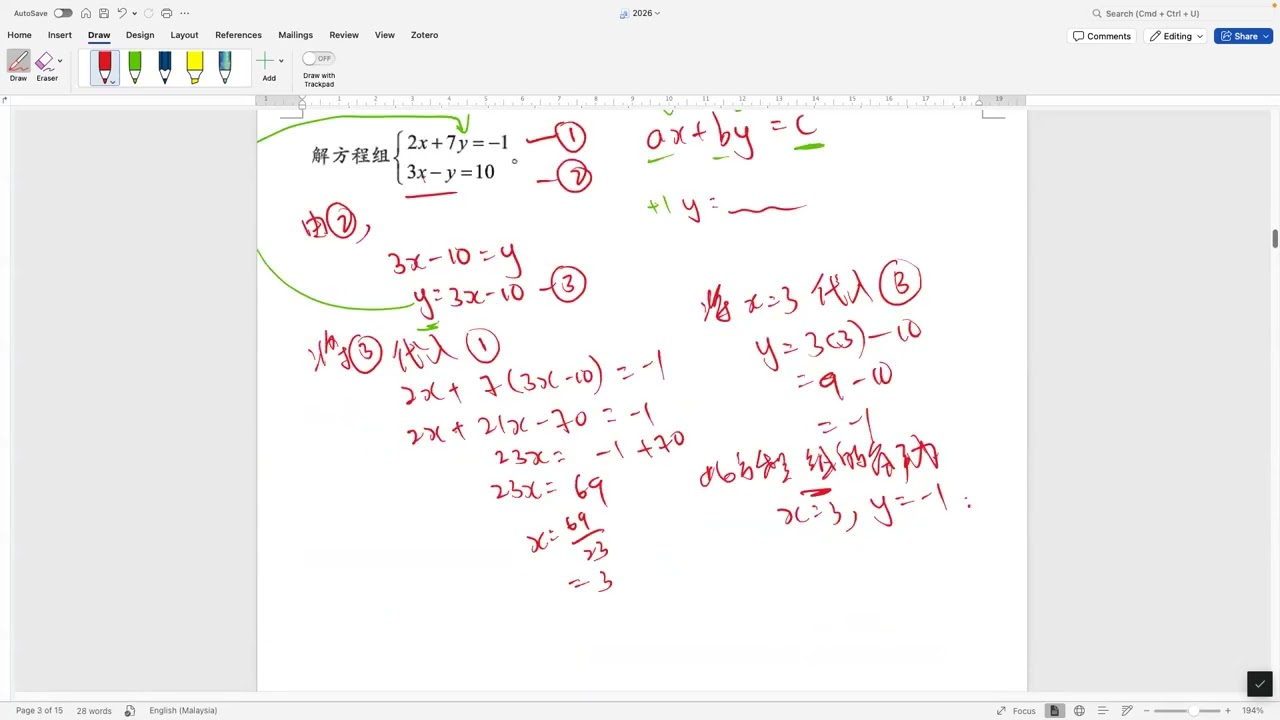 AutoSave
2026
Search (Cmd + Ctrl + U)
Home Insert Draw Design Layout References Mailings Review View Zotero
Comments Editing Share
Draw Eraser Add Draw with Trackpad
OFF
1 1 2 3 4 5 6 7 8 9 10 11 12 13 14 15 16 17 18 19
解方程组 2x + 7y = −1 ①
3x − y = 10 。 ②
ax + by = c
+1 y = 
由②,
3x − 10 = y
y = 3x − 10 ③
将③代入①
2x + 7(3x − 10) = −1
2x + 21x − 70 = −1
23x = −1 + 70
23x = 69
x = 69/23
= 3
将 x = 3 代入③
y = 3(3) − 10
= 9 − 10
= −1
方程组的解为
x = 3, y = −1
Page 3 of 15 28 words English (Malaysia) Focus 194%